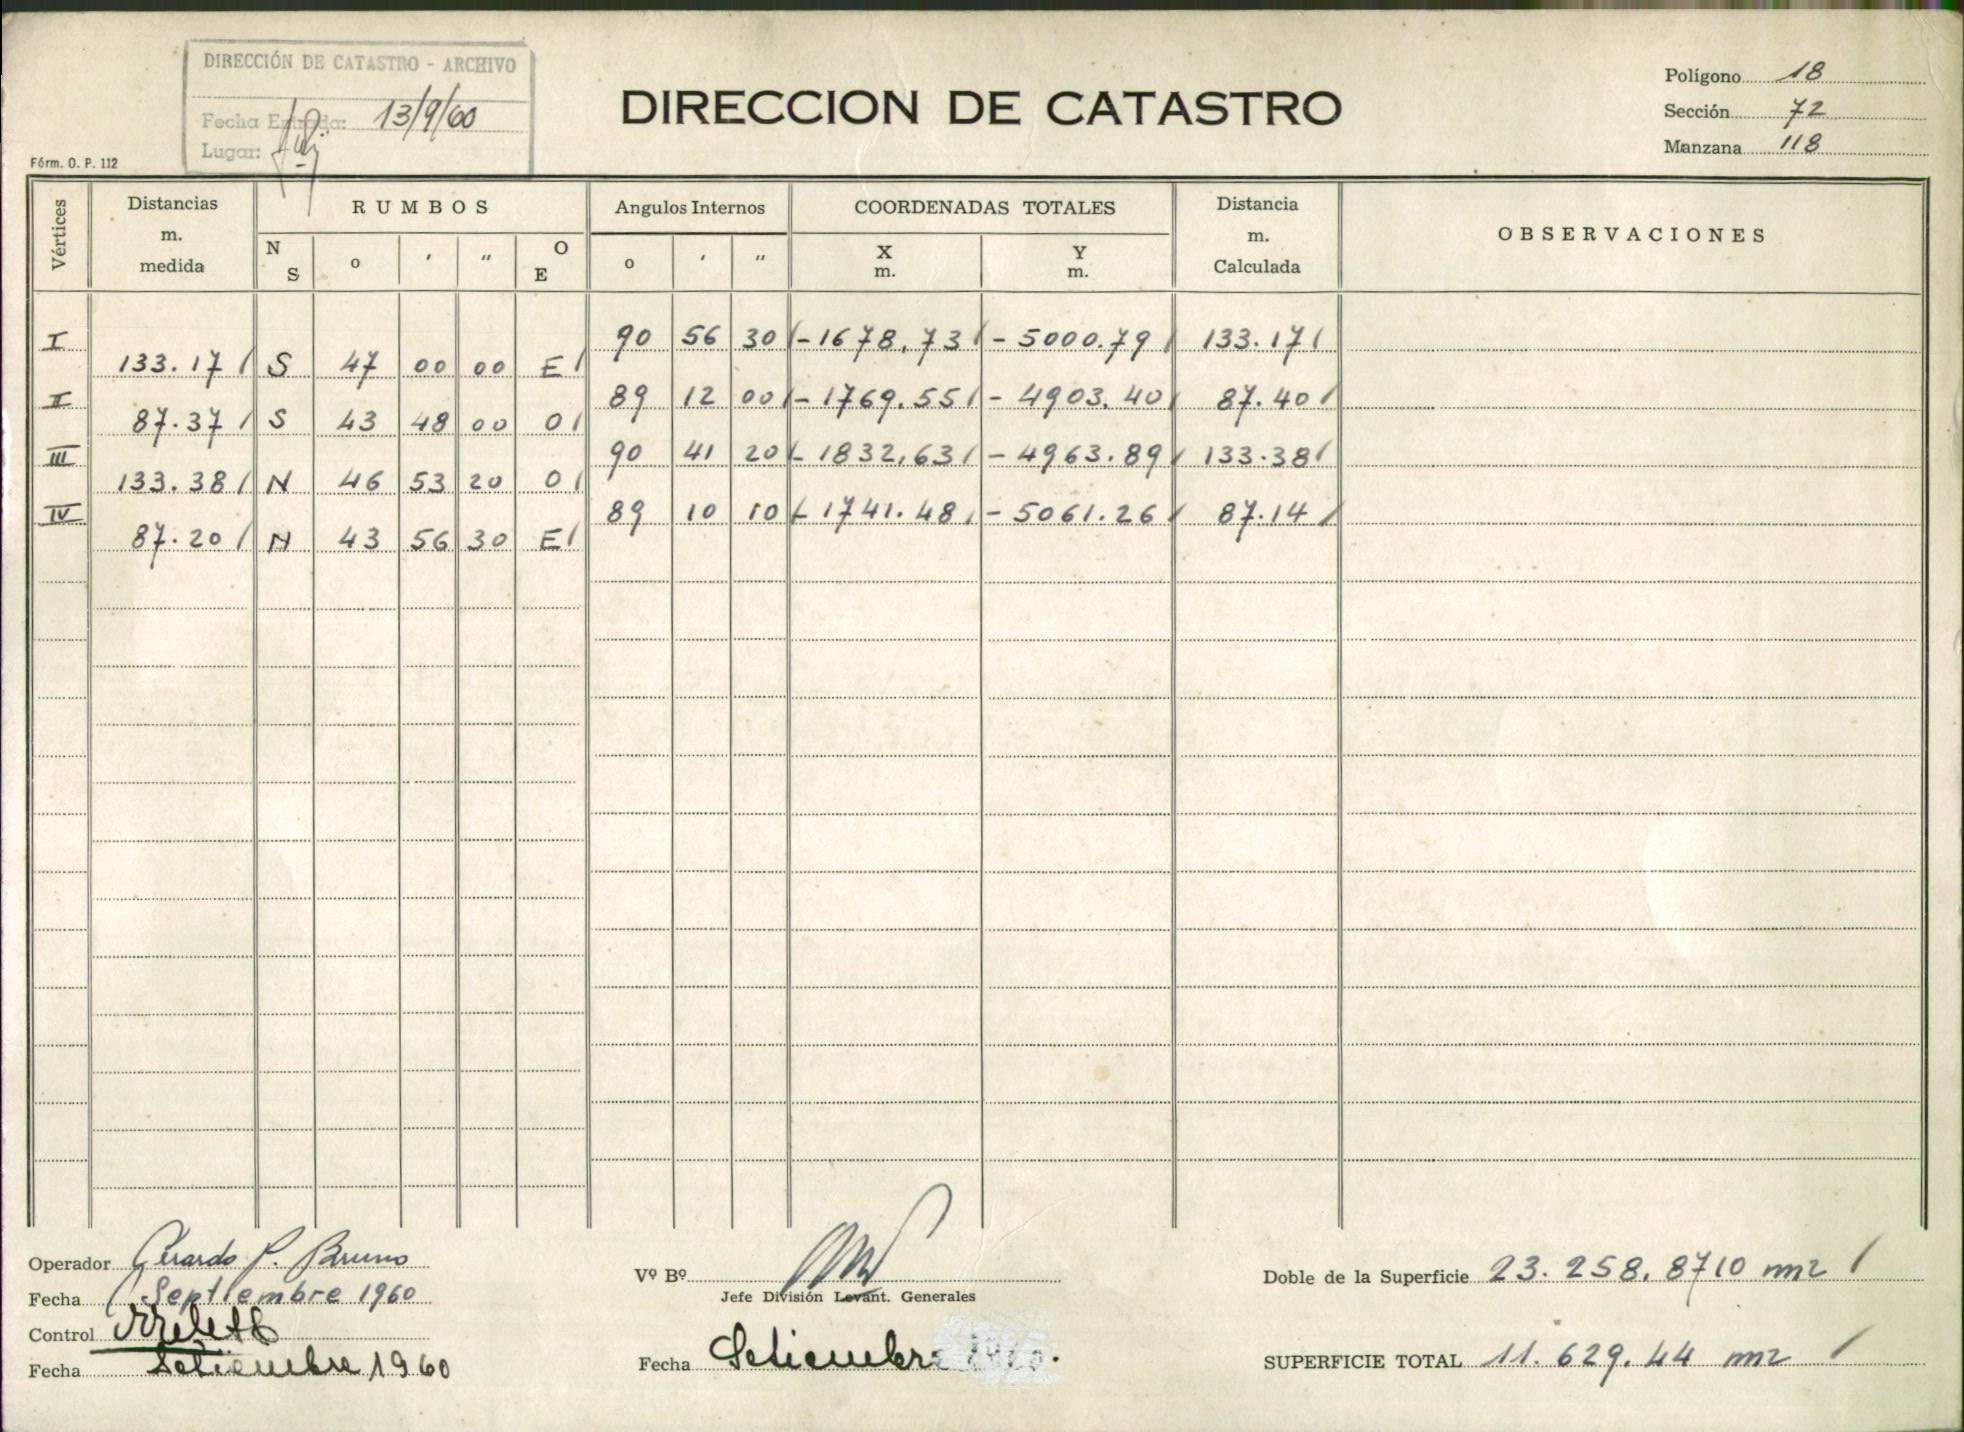 DIRECCIÓN DE CATASTRO - ARCHIVO
Fecha Entrada: 13/9/60
Lugar:
Fórm. O. P. 112
DIRECCION DE CATASTRO
Polígono 18
Sección 72
Manzana 118
Vértices
Distancias m. medida
RUMBOS
N S o ' " O E
Angulos Internos
o ' "
COORDENADAS TOTALES
X m. Y m.
Distancia m. Calculada
OBSERVACIONES
I 90 56 30 -1678.73 -5000.79 133.17
133.17 S 47 00 00 E
II 89 12 00 -1769.55 -4903.40 87.40
87.37 S 43 48 00 O
III 90 41 20 -1832.63 -4963.89 133.38
133.38 N 46 53 20 O
IV 89 10 10 -1741.48 -5061.26 87.14
87.20 N 43 56 30 E
Operador Gerardo P. Bruno
Fecha Septiembre 1960
Control
Fecha Setiembre 1960
Vº Bº
Jefe División Levant. Generales
Fecha Setiembre 1960.
Doble de la Superficie 23.258.8710 m2
SUPERFICIE TOTAL 11.629.44 m2